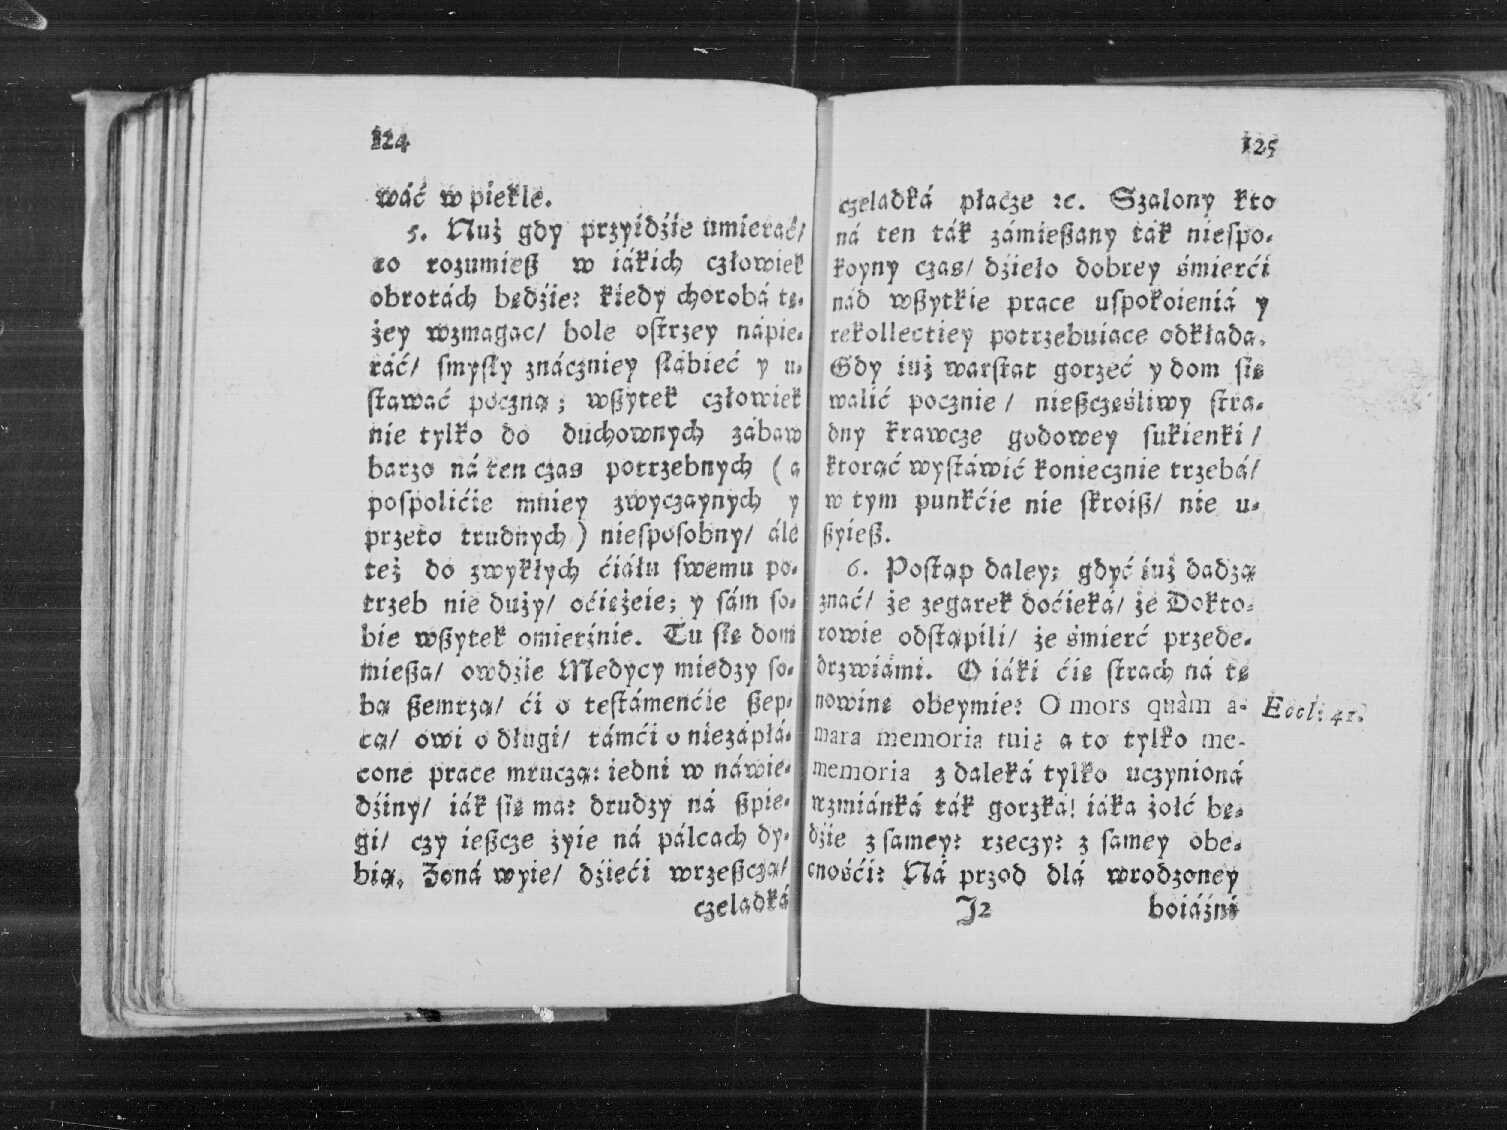 124
wáć w piekle.
5. Nuż gdy przyidźie umieráć/
to rozumieß w iákich człowiek
obrotách będźie? kiedy chorobá tę-
żey wzmagac/ bole ostrzey nápie-
ráć/ smysły znáczniey słábieć y u-
stawać poczną; wßytek człowiek
nie tylko do duchownych zabaw
barzo ná ten czas potrzebnych (a
pospolićie mniey zwyczaynych y
przeto trudnych) niesposobny/ ále
też do zwykłych ćiáłu swemu po-
trzeb nie duży/ oćiężeie; y sám so-
bie wßytek omierźnie. Tu się dom
mießa/ owdźie Medycy miedzy so-
bą ßemrzą/ ći o testámenćie ßep-
tą/ owi o długi/ támći o niezápłá-
cone prace mruczą: iedni w náwie-
dźiny/ iák się ma? drudzy ná ßpie-
gi/ czy ießcze żyie ná pálcach dy-
bią. Zoná wyie/ dźieći wrzeßczą/
czeladká
125
czeladká płacze ꝛc. Szalony kto
ná ten ták zámießany ták niespo-
koyny czas/ dźieło dobrey śmierći
nád wßytkie prace uspokoieniá y
rekollectiey potrzebuiace odkłada.
Gdy iuż warstat gorzeć y dom się
walić pocznie/ nießczęśliwy stra-
dny krawcze godowey sukienki/
ktorąć wystáwić koniecznie trzebá/
w tym punkćie nie skroiß/ nie u-
ßyieß.
6. Postąp daley; gdyć iuż dadzą
znać/ że zegarek doćieká/ że Dokto-
rowie odstąpili/ że śmierć przede-
drzwiámi. O iáki ćię strach ná tę
nowinę obeymie? O mors quàm a-
mara memoria tui? a to tylko me-
memoria z daleká tylko uczynioná
wzmiánká ták gorzka! iáka żołć bę-
dźie z samey? rzeczy? z samey obe-
cnośći? Ná przod dlá wrodzoney
J2 boiáźni
Eccl: 41.